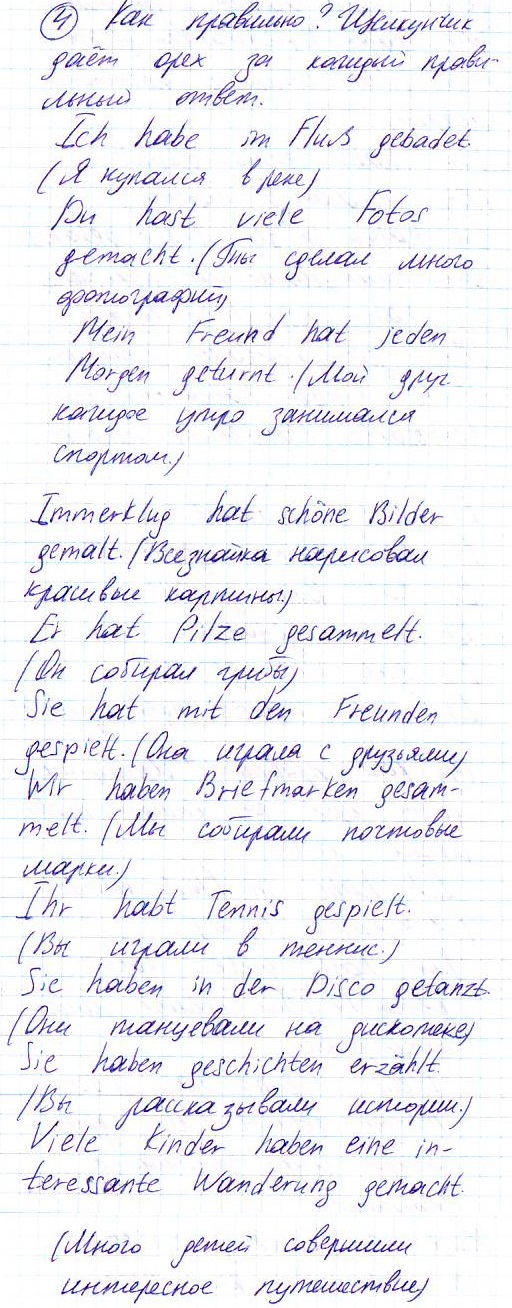 ④ Как правильно? Щелкунчик
даёт орех за каждый прави-
льный ответ.
Ich habe im Fluß gebadet.
(Я купался в реке)
Du hast viele Fotos
gemacht. (Ты сделал много
фотографий)
Mein Freund hat jeden
Morgen geturnt. (Мой друг
каждое утро занимался
спортом.)
Immerklug hat schöne Bilder
gemalt. (Всезнайка нарисовал
красивые картины.)
Er hat Pilze gesammelt.
(Он собирал грибы)
Sie hat mit den Freunden
gespielt. (Она играла с друзьями)
Wir haben Briefmarken gesam-
melt. (Мы собирали почтовые
марки.)
Ihr habt Tennis gespielt.
(Вы играли в теннис.)
Sie haben in der Disco getanzt.
(Они танцевали на дискотеке)
Sie haben geschichten erzählt.
(Вы рассказывали истории.)
Viele Kinder haben eine in-
teressante Wanderung gemacht.
(Много детей совершили
интересное путешествие)